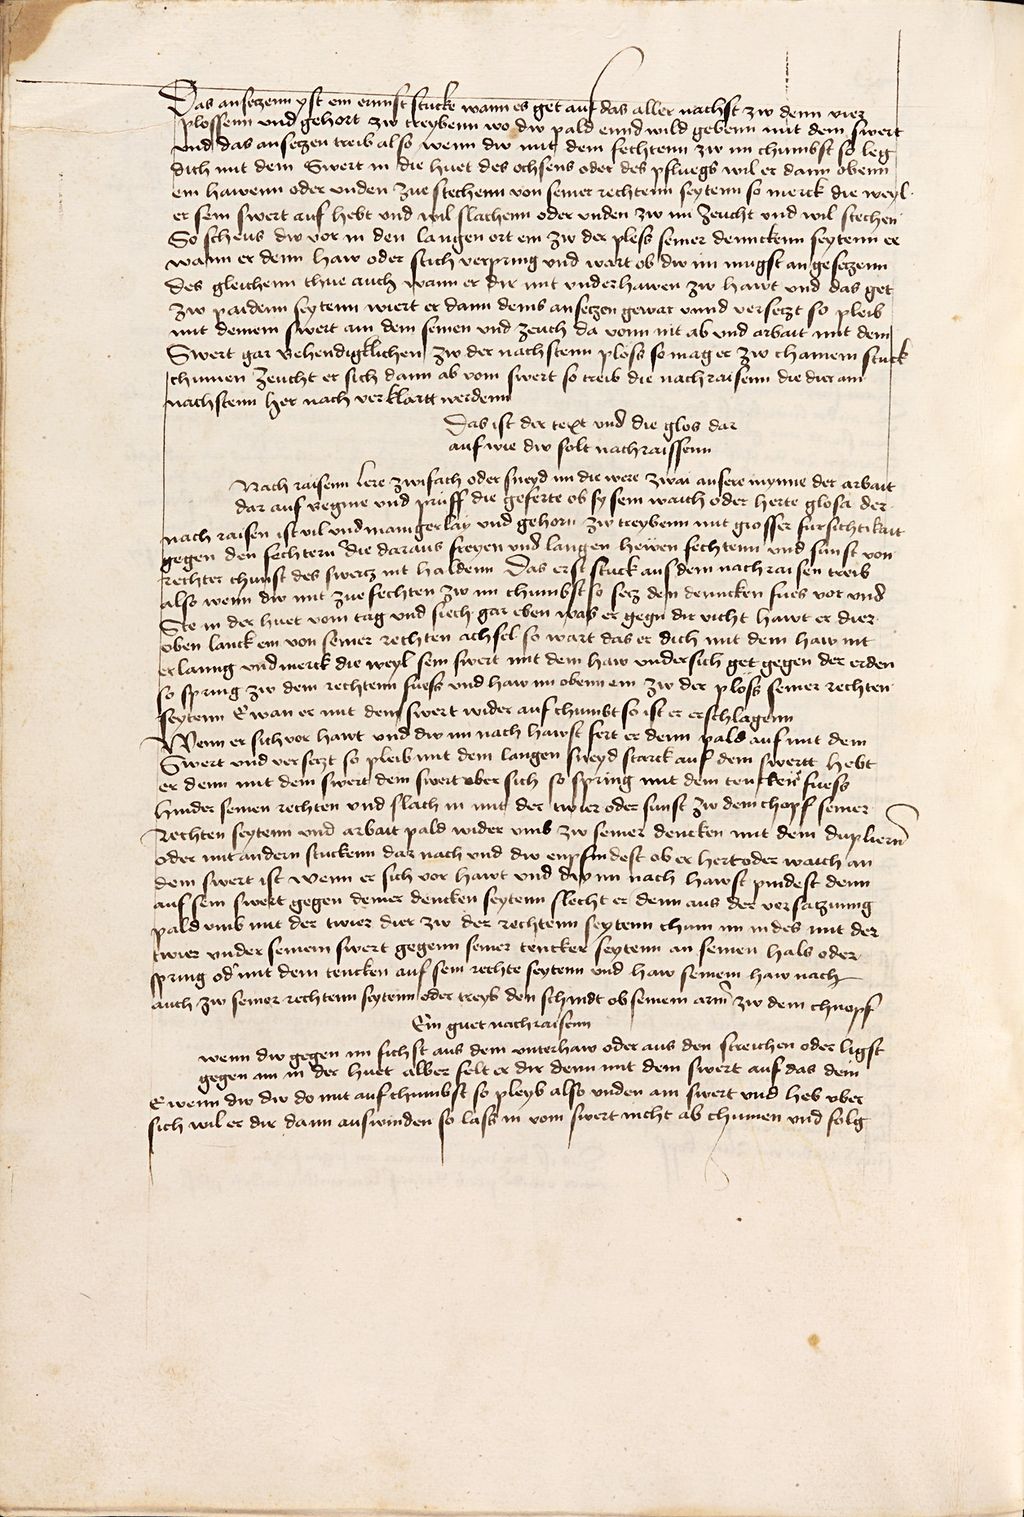 Das ansetzenn yst ein ernnst stucke wann es get auf das aller nachst zw denn vier
plossenn und gehort zw treybenn wo dw pald ennd wild gebenn mit dem swert
und das ansetzen treib also wenn dw mit dem fechtenn zw im chumbst so leg
dich mit dem Swert in die huet des ochsens oder des pfluegs wil er dann obenn
ein hawenn oder unden zue stechenn von seiner rechtenn seytenn so merck die weyl
er sein swert auf hebt und wil slachenn oder unden zw im zeucht und wil stechen
So scheus dw vor in den langen ort ein zw der pless seiner dennckenn seytenn ee
wann er denn haw oder stich verpring und wart ob dw im mugst an gesetzenn
des gleichenn thue auch wann er dir mit underhawen zw hawt und das get
zw paidenn seytenn wiert er dann deins ansetzen gewar unnd versetzt so pleib
mit deinem swert an dem seinen und zeuch da vonn nit ab und arbait mit dem
Swert gar behendigklichen zw der nachstenn ploss so mag er zw chainem stuck
chumen zeucht er sich dann ab vom swert so treib die nachraisenn die dier am
nachstenn her nach verklartt werdenn
Das ist der text und die glos dar
auf wie dw solt nachraissenn
Nach raisenn lere zwifach oder sneyd im die were zwai ausere mynne der arbait
dar auf begine und prüff die geferte ob sy sein waich oder herte glosa der
nach raisen ist vil und mainigerlay und gehorn zw treybenn mit grosser fursichtikait
gegen den fechtern die daraus freyen und langen hewen fechtenn und sunst von
rechter chunst des swertz nit haldenn Das erst stuck aus dem nach raisen treib
also wenn dw mit zue fechten zw im chumbst so secz den denncken fues vor und
Ste in der huet vom tag und siech gar eben was er gegn dir vicht hawt er dier
oben lanck ein von seiner rechten achsel so wart das er dich mit dem haw nit
erlanng und merck die weyl sein swert mit dem haw undersich get gegen der erden
so spring zw dem rechtenn fuess und haw im obenn ein zw der plöss seiner rechten
seytenn E wan er mit dem swert wider auf chumbt so ist er erschlagenn
Wenn er sich vor hawt und dw im nach hawst fert er denn pald auf mit dem
Swert und versetzt so pleib mit dem langen sneyd starck auf dem swertt hebt
er denn mit dem swert dem swert uber sich so spring mit dem tencken fuess
hinder seinen rechten und slach in mit der twier oder sunst zw dem chopf seiner
Rechten seytenn und arbait pald wider umb zw seiner dencken mit dem duplierñ
oder mit andern stuckenn dar nach und dw enpfindest ob er hert oder waich an
dem swert ist wenn er sich vor hawt und dw im nach hawst pindest denn
auf sein swert gegen deiner dencken seytenn slecht er denn aus der versatzunng
pald umb mit der twier dier zw der rechtenn seytenn chum im indes mit der
twier under seinem swert gegenn seiner tencker seytenn an seinen hals oder
spring od' mit dem tencken auf sein rechte seytenn und haw seinem haw nach
auch zw seiner rechtenn seytenn oder treyb den schnidt ob seinem arm zw dem chnopf
Ein guet nachraisenn
wenn dw gegen im fichst aus dem unterhaw oder aus den streichen oder ligst
gegen im in der huet alber felt er dir denn mit dem swert auf das dein
E wenn dw dw do mit auf chumbst so pleyb also unden am swert und heb uber
sich wil er dir dann auswinden so lass in vom swert nicht ab chumen und folg